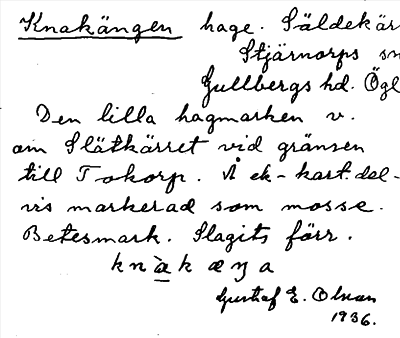 Knakängen hage. Säldekär
Stjärnorps sn
Gullbergs hd. Ögl
Den lilla hagmarken v.
om Slätkärret vid gränsen
till Tokorp. Å ek-kart. del-
vis markerad som mosse.
Betesmark. Slagits förr.
knàkæŋa
Gustaf E. Olsan
1936.